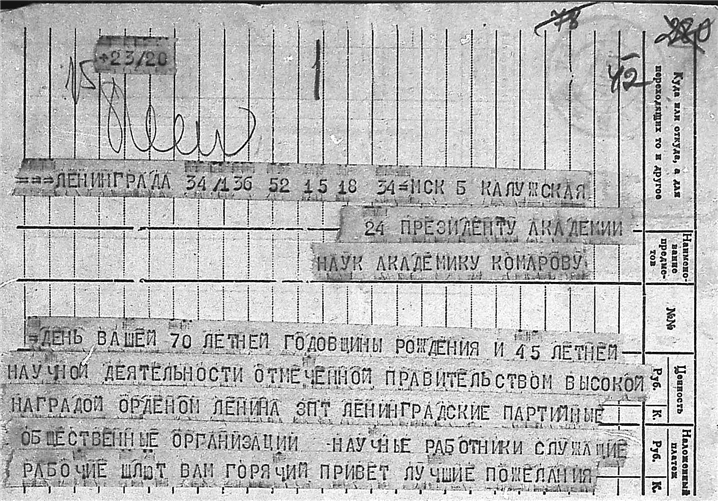 78
→23/20
42
===ЛЕНИНГРАДА 34/136 52 15 18 34=МСК Б КАЛУЖСКАЯ
24 ПРЕЗИДЕНТУ АКАДЕМИИ
НАУК АКАДЕМИКУ КОМАРОВУ
=ДЕНЬ ВАШЕЙ 70 ЛЕТНЕЙ ГОДОВЩИНЫ РОЖДЕНИЯ И 45 ЛЕТНЕЙ
НАУЧНОЙ ДЕЯТЕЛЬНОСТИ ОТМЕЧЕННОЙ ПРАВИТЕЛЬСТВОМ ВЫСОКОЙ
НАГРАДОЙ ОРДЕНОМ ЛЕНИНА ЗПТ ЛЕНИНГРАДСКИЕ ПАРТИЙНЫЕ
ОБЩЕСТВЕННЫЕ ОРГАНИЗАЦИЙ НАУЧНЫЕ РАБОТНИКИ СЛУЖАЩИЕ
РАБОЧИЕ ШЛЮТ ВАМ ГОРЯЧИЙ ПРИВЕТ ЛУЧШИЕ ПОЖЕЛАНИЯ
Куда или откуда, а для
переходящих то и другое
Наимено-
вание
предме-
тов
№№
Ценность
Руб. К
Наложенный
платеж
Руб. К